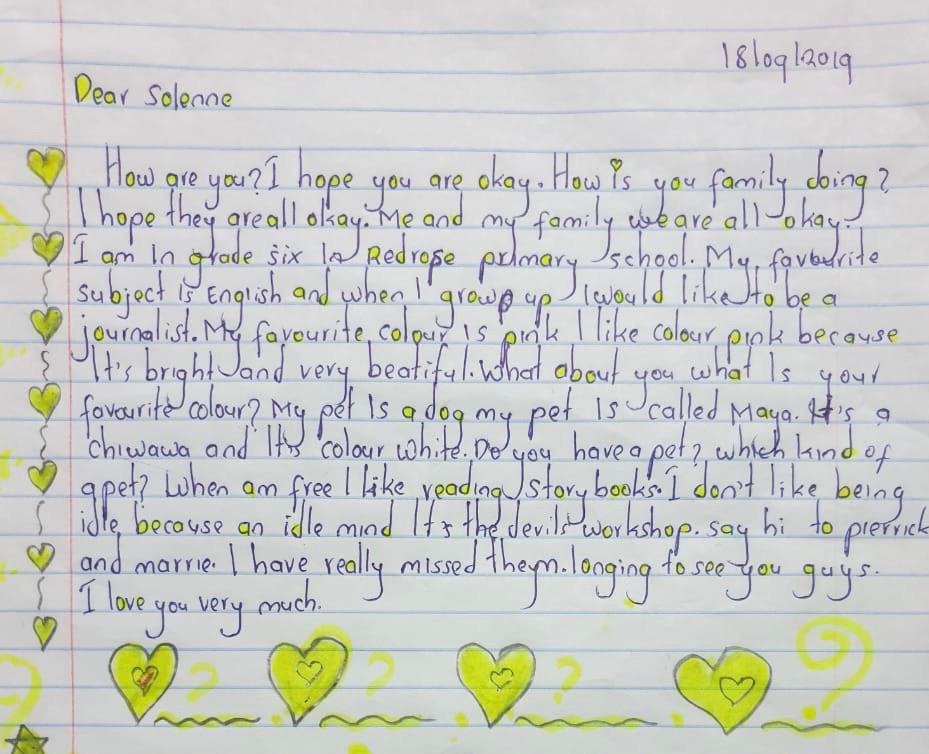 18/09/2019
Dear Solenne
How are you? I hope you are okay. How is you family doing?
I hope they are all okay. Me and my family we are all okay.
I am in grade six in Redrose primary school. My favourite
subject is English and when I grow up I would like to be a
journalist. My favourite colour is pink I like colour pink because
It's bright and very beatiful. What about you what is your
favourite colour? My pet is a dog my pet is called Maya. It's a
chiwawa and It's colour white. Do you have a pet? which kind of
a pet? When am free I like reading storybooks. I don't like being
idle, because an idle mind It's the devil's workshop. say hi to pierrick
and marrie. I have really missed them. longing to see you guys.
I love you very much.